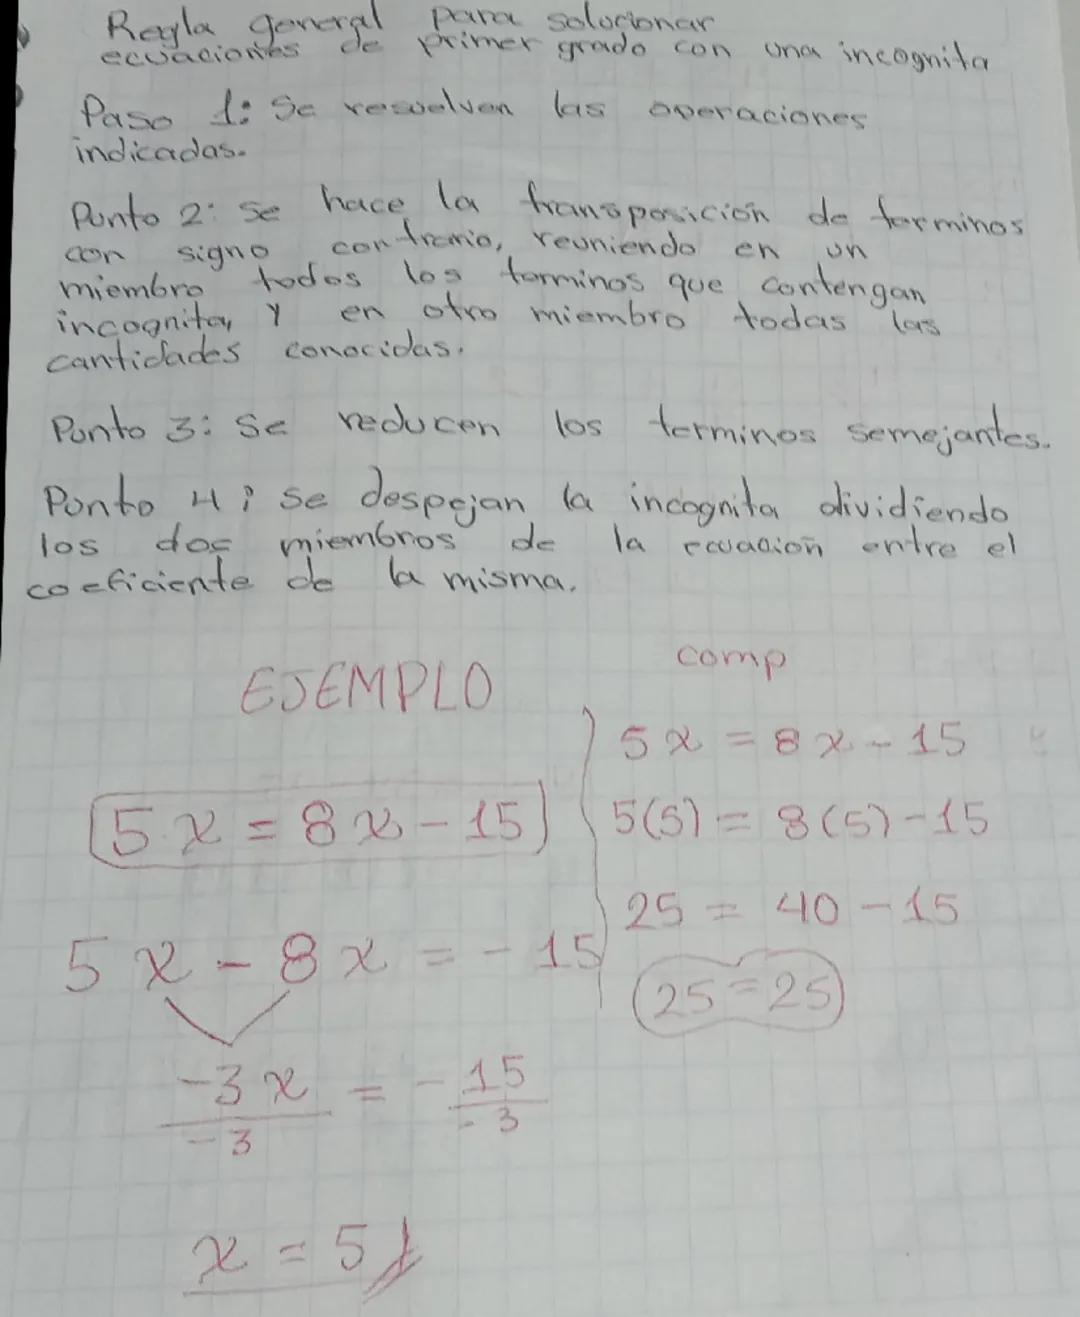 Regla general para solucionar
ecuaciones de primer grado con una incognita
Paso 1: Se resuelven las operaciones
indicadas.
Punto 2: se hace la transposición de terminos
con signo contrario, reuniendo en un
miembro todos los terminos que contengan
incognita, y en otro miembro todas las
cantidades conocidas.
Punto 3: Se reducen los terminos semejantes.
Punto 4: se despejan la incognita dividiendo
los dos miembros de la ecuación entre el
coeficiente de la misma.
EJEMPLO
5x = 8x - 15
5x - 8x = - 15
-3x = - 15
-3 - 3
x = 5
comp
5x = 8x - 15
5(5) = 8(5) - 15
25 = 40 - 15
25 = 25